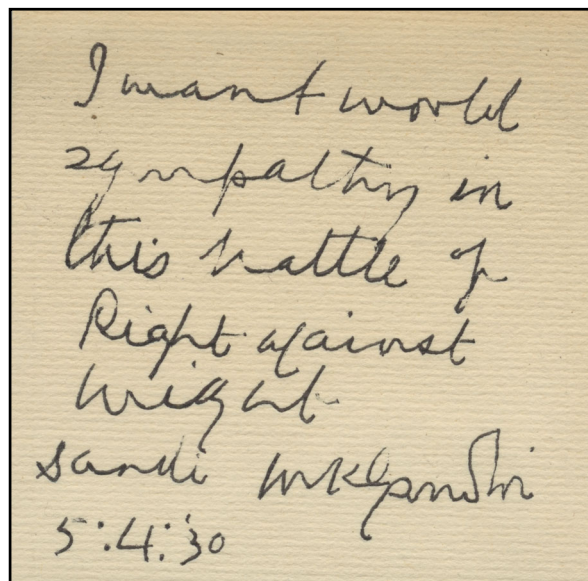 I want world
sympathy in
this battle of
Right against
might.
Dandi MKGandhi
5:4:'30